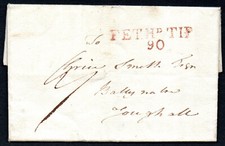 FETHD TIP
90
To
Smith Esqr
Ballynatra
Youghall